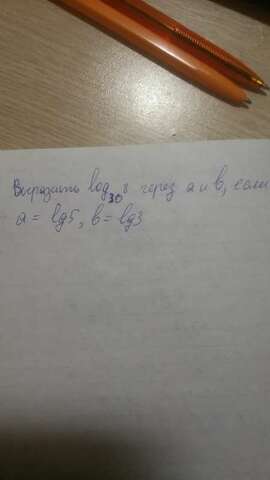 Выразить log₃₀ 8 через a и b, если
a = lg5, b = lg3